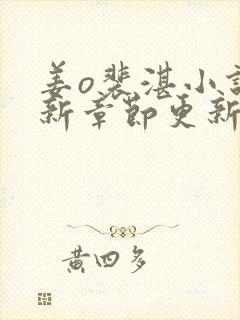 姜o裴湛小
新章節更新
黄四多